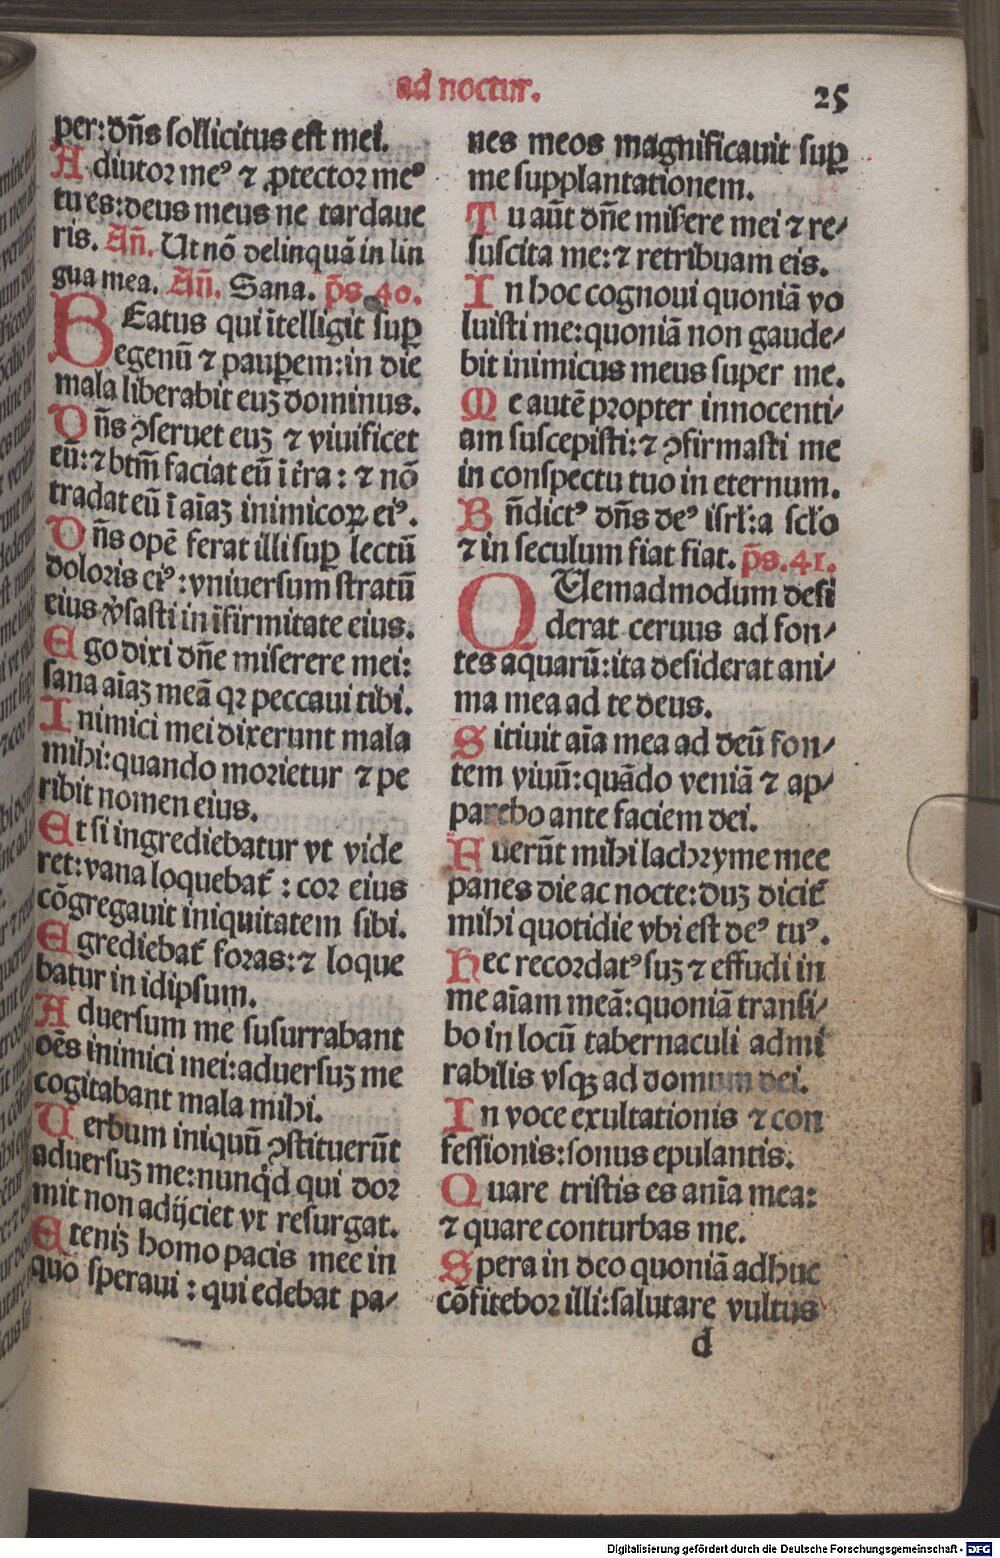 ad noctur.
25
per: dñs sollicitus est mei.
Adiutor me⁹ ⁊ ꝓtector me⁹
tu es: deus meus ne tardaue
ris. Añ. Ut nō delinquā in lin
gua mea. Añ. Sana. p̄s. 40.
BEatus qui ītelligit suꝑ
egenū ⁊ pauꝑem: in die
mala liberabit euꝫ dominus.
Dñs ꝯseruet euꝫ ⁊ viuificet
eū: ⁊ btm̄ faciat eū ī ťra: ⁊ nō
tradat eū ī aīaꝫ inimicoꝝ ei⁹.
Dñs opē ferat illi suꝑ lectū
doloris ei⁹: vniuersum stratū
eius v̓sasti in īfirmitate eius.
Ego dixi dñe miserere mei:
sana aīaꝫ meā qꝛ peccaui tibi.
Inimici mei dixerunt mala
mihi: quando morietur ⁊ pe
ribit nomen eius.
Et si ingrediebatur vt vide
ret: vana loquebat᷑: cor eius
cōgregauit iniquitatem sibi.
Egrediebat᷑ foras: ⁊ loque
batur in idipsum.
Aduersum me susurrabant
oēs inimici mei: aduersuꝫ me
cogitabant mala mihi.
Uerbum iniquū ꝯstituerūt
aduersuꝫ me: nunqd̓ qui dor
mit non adijciet vt resurgat.
Eteniꝫ homo pacis mee in
quo speraui: qui edebat pa⸗
nes meos magnificauit suꝑ
me supplantationem.
Tu aūt dñe misere mei ⁊ re⸗
suscita me: ⁊ retribuam eis.
In hoc cognoui quoniā vo
luisti me: quoniā non gaude⸗
bit inimicus meus super me.
Me autē propter innocenti⸗
am suscepisti: ⁊ ꝯfirmasti me
in conspectu tuo in eternum.
Bñdict⁹ dñs de⁹ isrł: a scło
⁊ in seculum fiat fiat. p̄s. 41.
QUemadmodum desi
derat ceruus ad fon⸗
tes aquarū: ita desiderat ani⸗
ma mea ad te deus.
Sitiuit aīa mea ad deū fon⸗
tem viuū: quādo veniā ⁊ ap⸗
parebo ante faciem dei.
Fuerūt mihi lachryme mee
panes die ac nocte: duꝫ dicit᷑
mihi quotidie vbi est de⁹ tu⁹.
Hec recordat⁹ suꝫ ⁊ effudi in
me aīam meā: quoniā transi⸗
bo in locū tabernaculi admi
rabilis vsqꝫ ad domum dei.
In voce exultationis ⁊ con
fessionis: sonus epulantis.
Quare tristis es anīa mea:
⁊ quare conturbas me.
Spera in deo quoniā adhuc
cōfitebor illi: salutare vultus
d
Digitalisierung gefördert durch die Deutsche Forschungsgemeinschaft - DFG